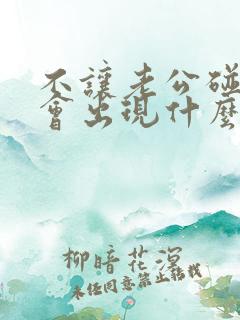 不讓老公碰
會出現什麼
柳暗花溟
未經同意禁止轉載